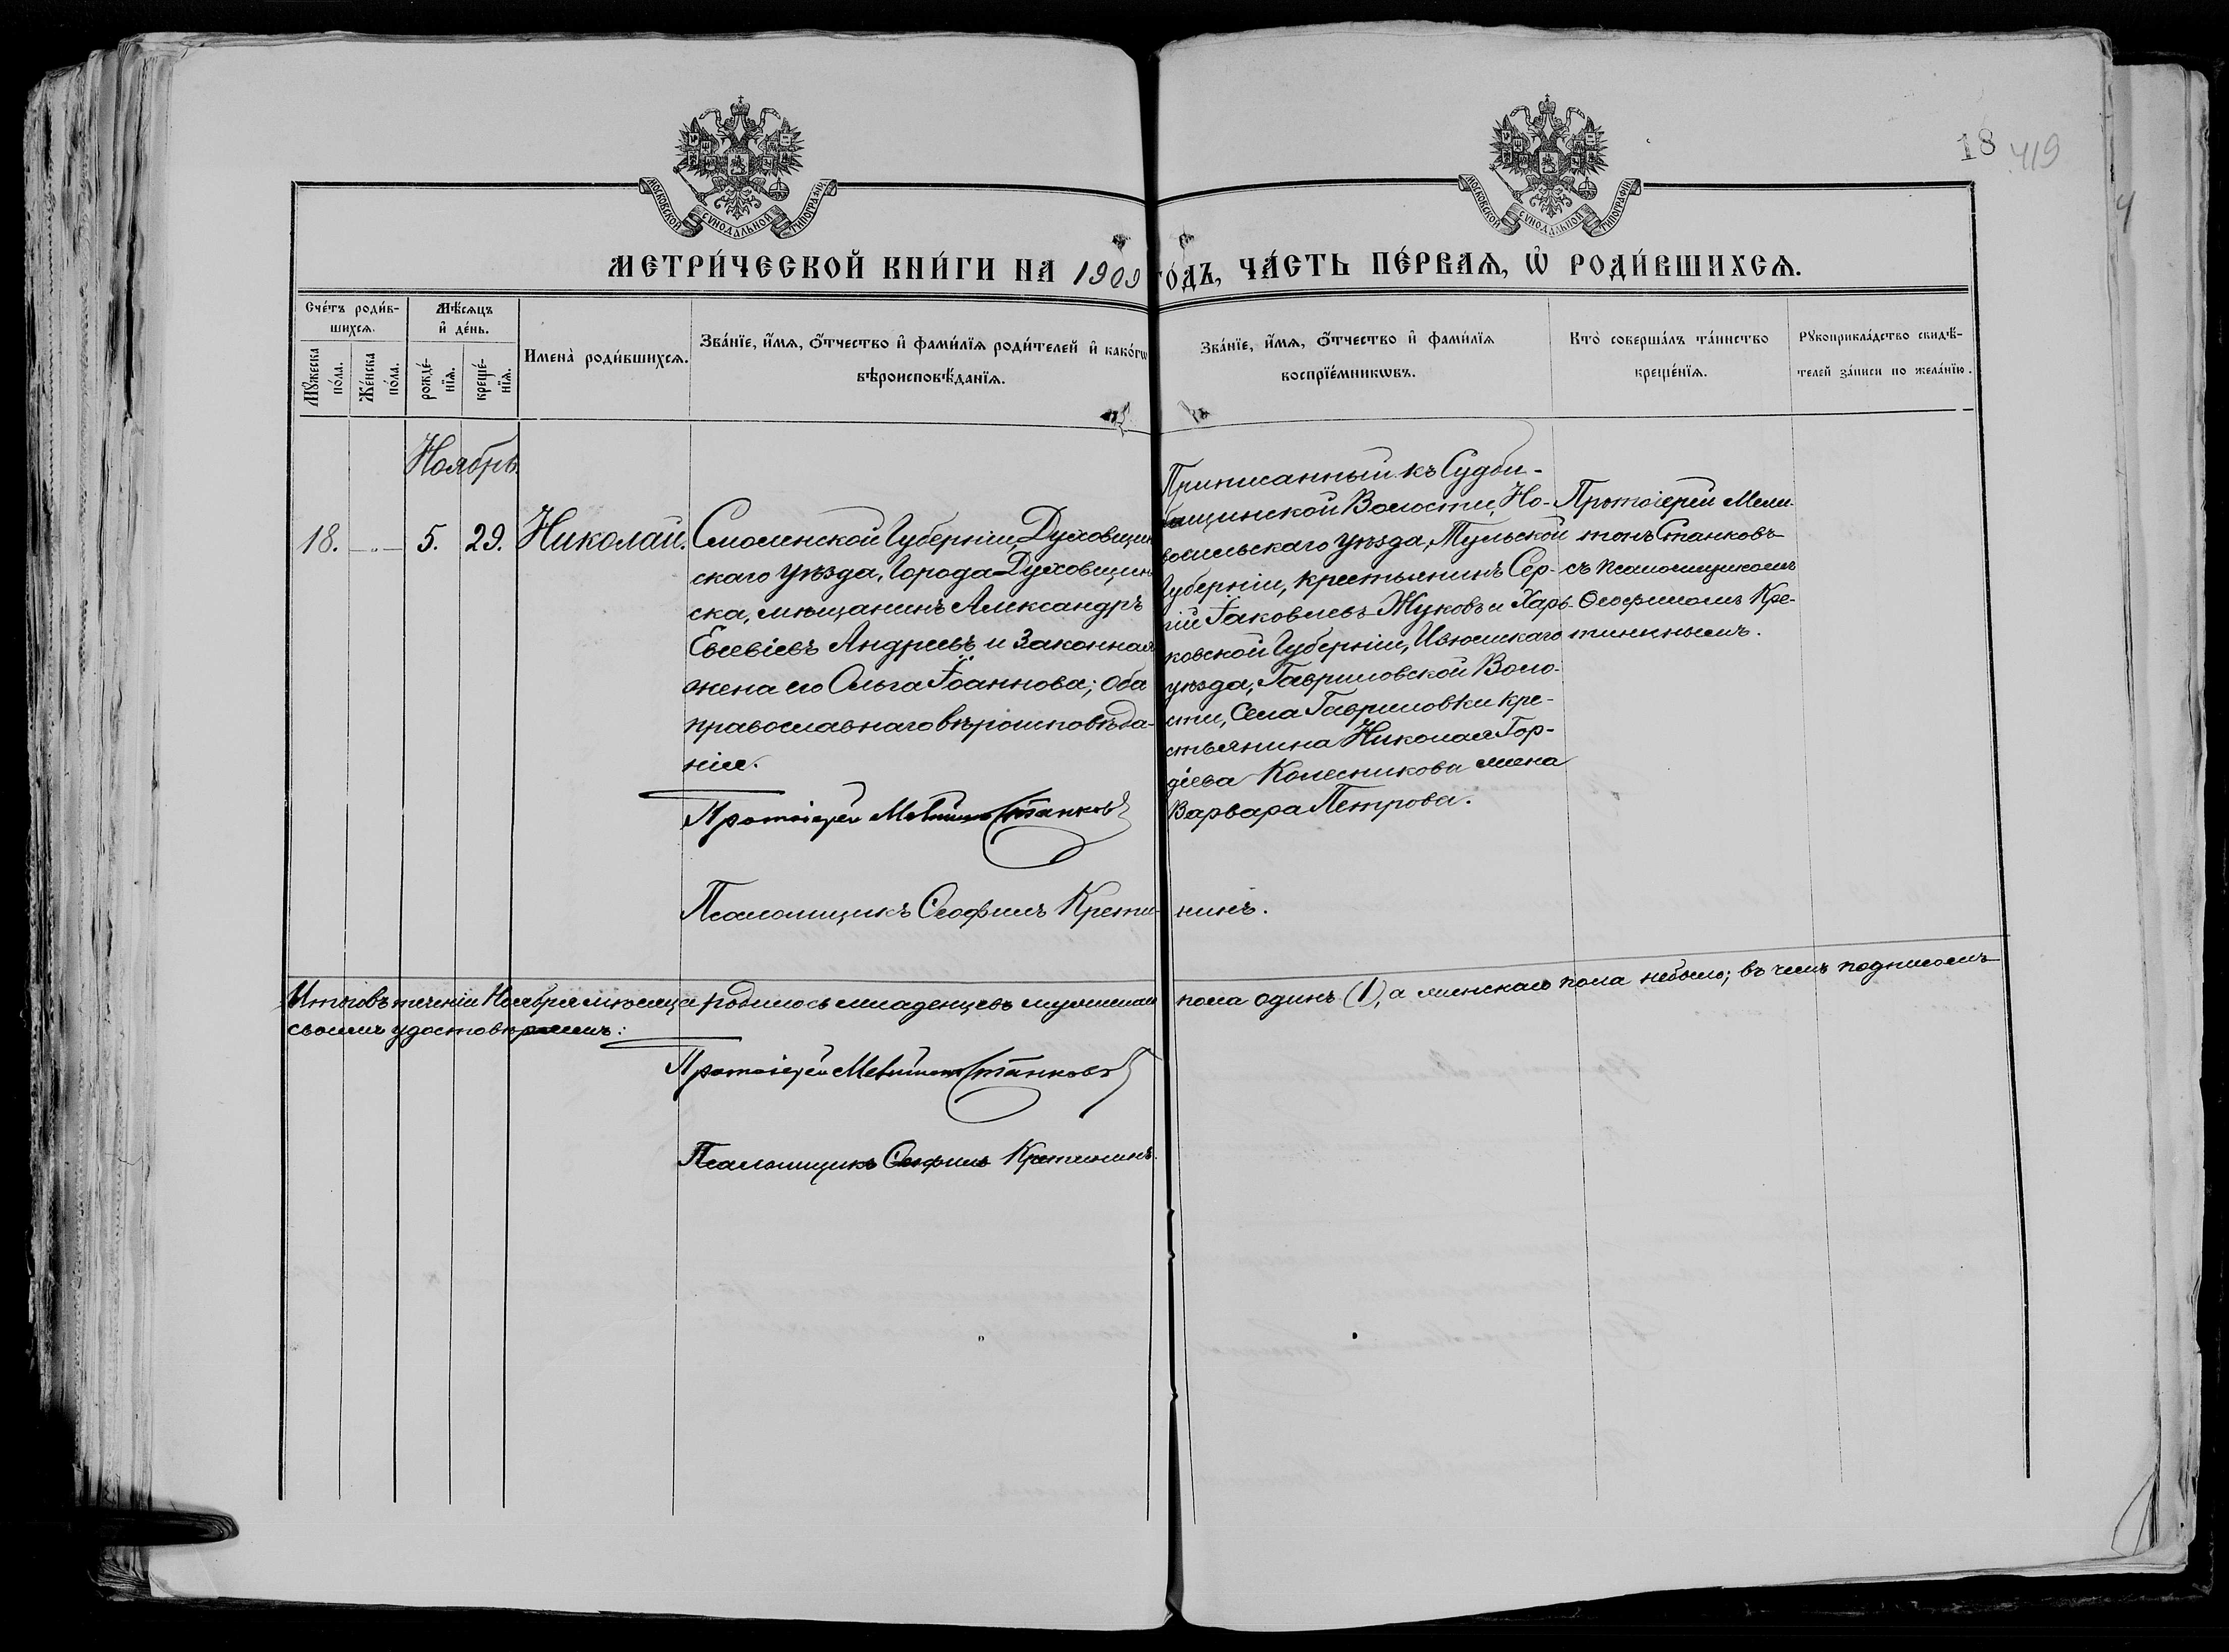 18 419
МОСКОВСКОЙ СѴНОДАЛЬНОЙ ТИПОГРАФІИ
МОСКОВСКОЙ СѴНОДАЛЬНОЙ ТИПОГРАФІИ
МЕТРИ́ЧЕСКОЙ КНИ́ГИ НА 1909 ГО́ДЪ, ЧА́СТЬ ПЕ́РВАѦ, Ѡ҆ РОДИ́ВШИХСѦ.
Сче́тъ роди́в-
шихсѧ.
Мꙋ́жеска по́ла.
Же́нска по́ла.
Мѣ́сѧцъ
и҆ де́нь.
рожде́-
нїѧ.
креще́-
нїѧ.
Имена̀ роди́вшихсѧ.
Зва́нїе, и҆́мѧ, ѻ҆́тчество и҆ фами́лїѧ роди́телей и҆ како́гѡ
вѣроисповѣ́данїѧ.
Зва́нїе, и҆́мѧ, ѻ҆́тчество и҆ фами́лїѧ
воспрїе́мникѡвъ.
Кто̀ соверша́лъ та́инство
креще́нїѧ.
Рꙋкоприкла́дство свидѣ́-
телей за́писи по жела́нїю.
Ноябрь
18. — „ — 5. 29. Николай.
Смоленской Губерніи, Духовщин
скаго уѣзда, Города Духовщин
ска, мѣщанинъ Александръ
Евсевіевъ Андреевъ и законная
жена его Ольга Іоаннова; оба
православнаго вѣроисповѣда-
нія.
Протоіерей Мелитонъ Станковъ
Псаломщикъ Ѳеофилъ Крети-нинъ.
Приписанный къ Судби-
щинской Волости, Но-
восильскаго уѣзда, Тульской
Губерніи, крестьянинъ Сер-
гій Іаковлевъ Жуковъ и Харь-
ковской Губерніи, Изюмскаго
уѣзда, Гавриловской Воло-
сти, Села Гавриловки кре-
стьянина Николая Гор-
діева Колесникова жена
Варвара Петрова.
Протоіерей Мели-
тонъ Станковъ
съ псаломщикомъ
Ѳеофиломъ Кре-
тининымъ.
Итого въ теченіи Ноября мѣсяца родилось младенцевъ мужескаго пола одинъ (1), а женскаго пола небыло; въ чемъ подписомъ
своимъ удостовѣряемъ:
Протоіерей Мелитонъ Станковъ
Псаломщикъ Ѳеофилъ Кретининъ.